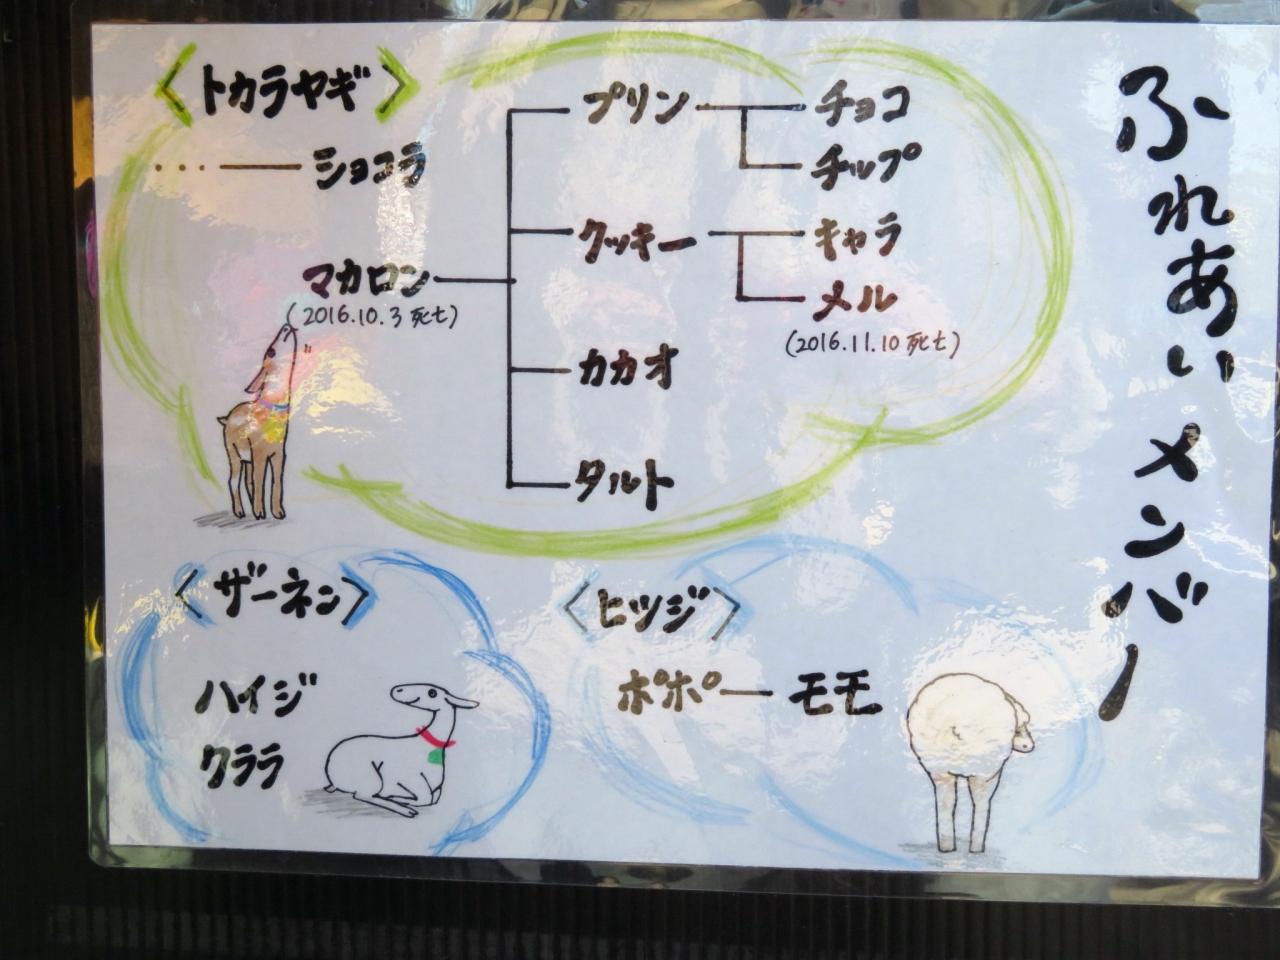 ふれあいメンバー
〈トカラヤギ〉
…ショコラ
マカロン
(2016.10.3 死亡)
プリン
チョコ
チップ
クッキー
キャラ
メル
(2016.11.10 死亡)
カカオ
タルト
〈ザーネン〉
ハイジ
クララ
〈ヒツジ〉
ポポ モモ